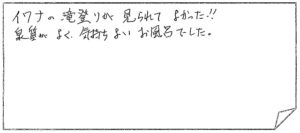 イワナの滝登りが見られてよかった!!
泉質がよく、気持ちよいお風呂でした。